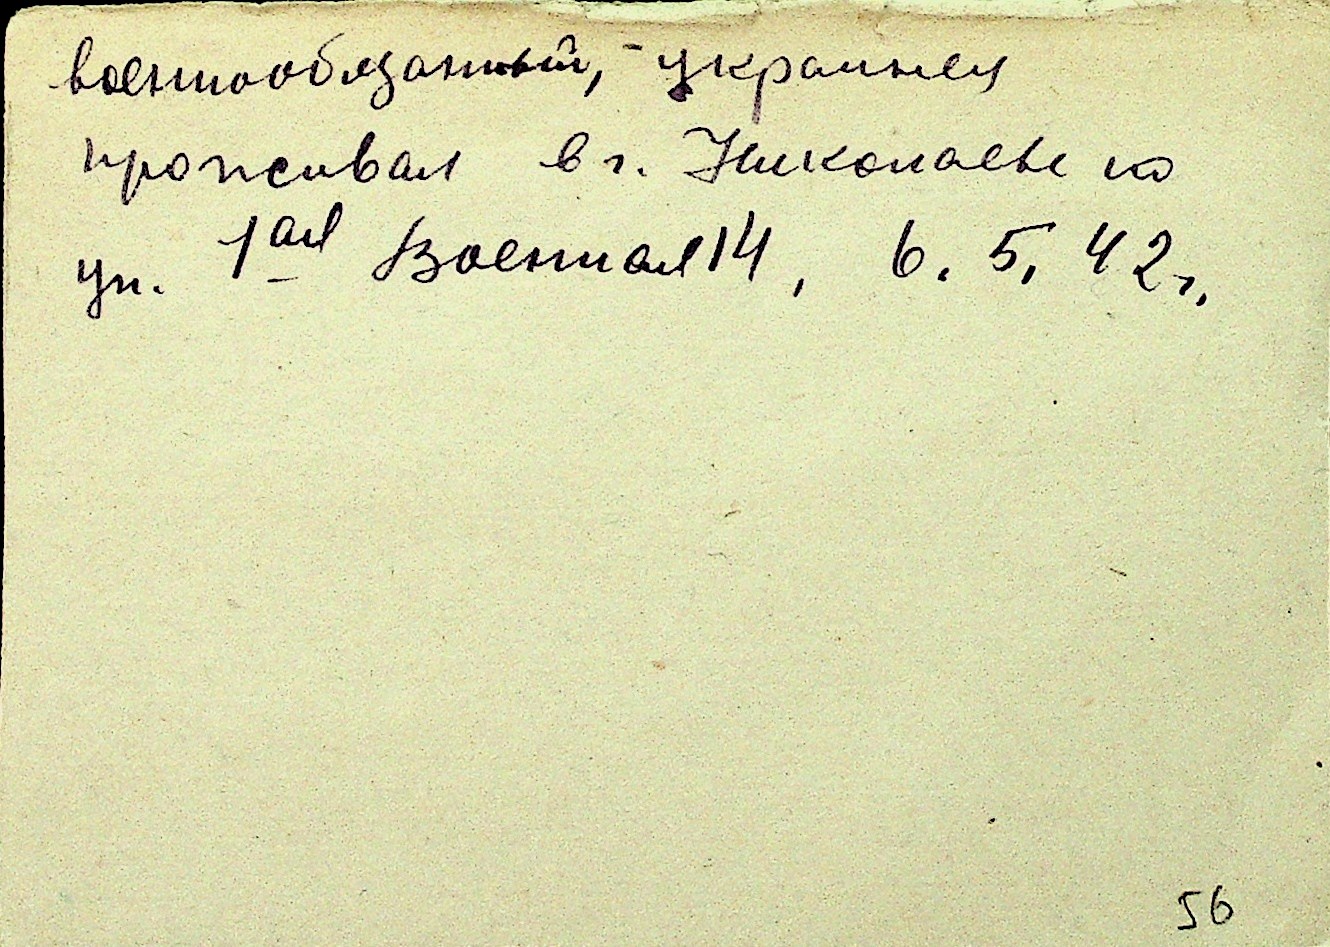 военнообязанный, - украинец
проживал в г. Николаеве по
ул. 1ая Военная 14, 6. 5. 42 г.
56